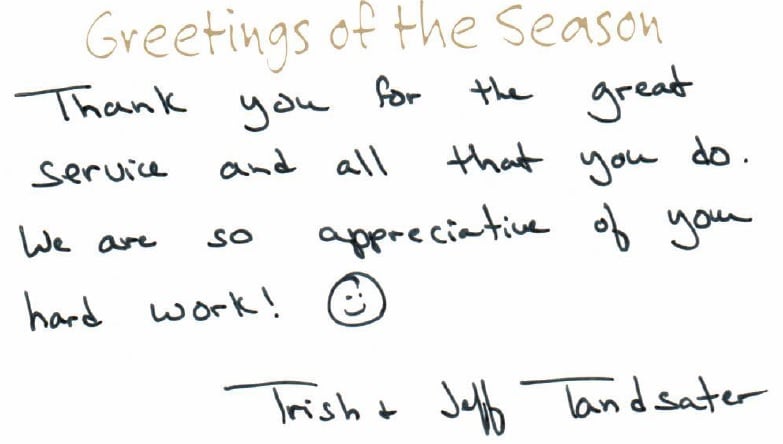 Greetings of the Season
Thank you for the great
service and all that you do.
We are so appreciative of your
hard work! ☺
Trish + Jeff Tandsater